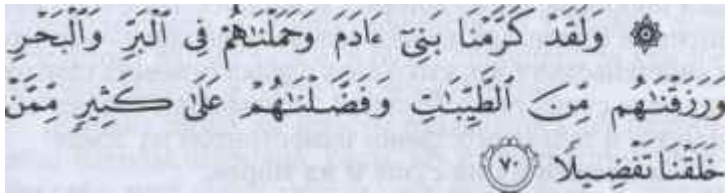 ۞ وَلَقَدْ كَرَّمْنَا بَنِىٓ ءَادَمَ وَحَمَلْنَٰهُمْ فِى ٱلْبَرِّ وَٱلْبَحْرِ
وَرَزَقْنَٰهُم مِّنَ ٱلطَّيِّبَٰتِ وَفَضَّلْنَٰهُمْ عَلَىٰ كَثِيرٍ مِّمَّنْ
خَلَقْنَا تَفْضِيلًا ٧٠